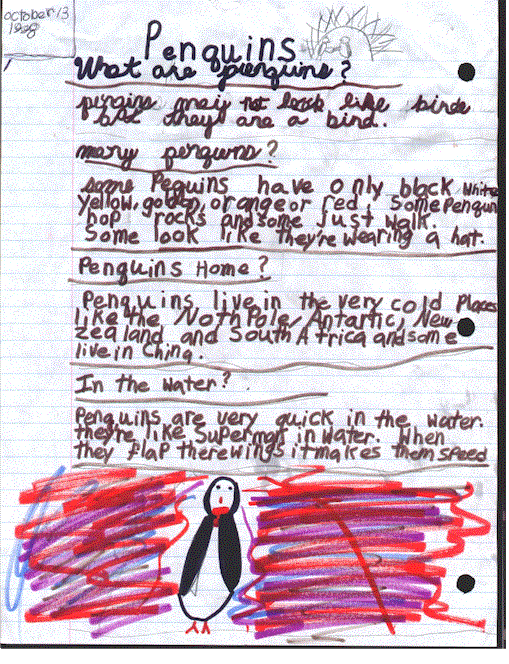 october 13
1998
Penguins
What are penguins?
pengins may not look like birds
but they are a bird.
many penguins?
some Peguins have only black white
yellow, golden, orange or red. Some Penguin
hop rocks and some just walk.
Some look like they're wearing a hat.
Penguins Home?
Penguins live in the very cold Places
like the Noth Pole, Antartic, New
zealand and South Africa and some
live in China.
In the water?
Penguins are very quick in the water.
they're like Superman in water. When
they flap there wings it makes them speed